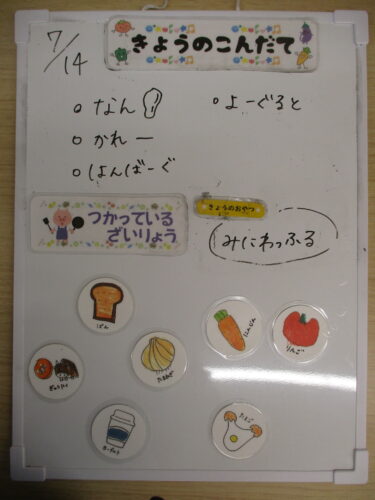 7/14
きょうのこんだて
○ なん
○ よーぐると
○ かれー
○ はんばーぐ
つかっている
ざいりょう
きょうのおやつ
みにわっふる
ぱん
たまねぎ
にんじん
りんご
ヨーグルト
たまご